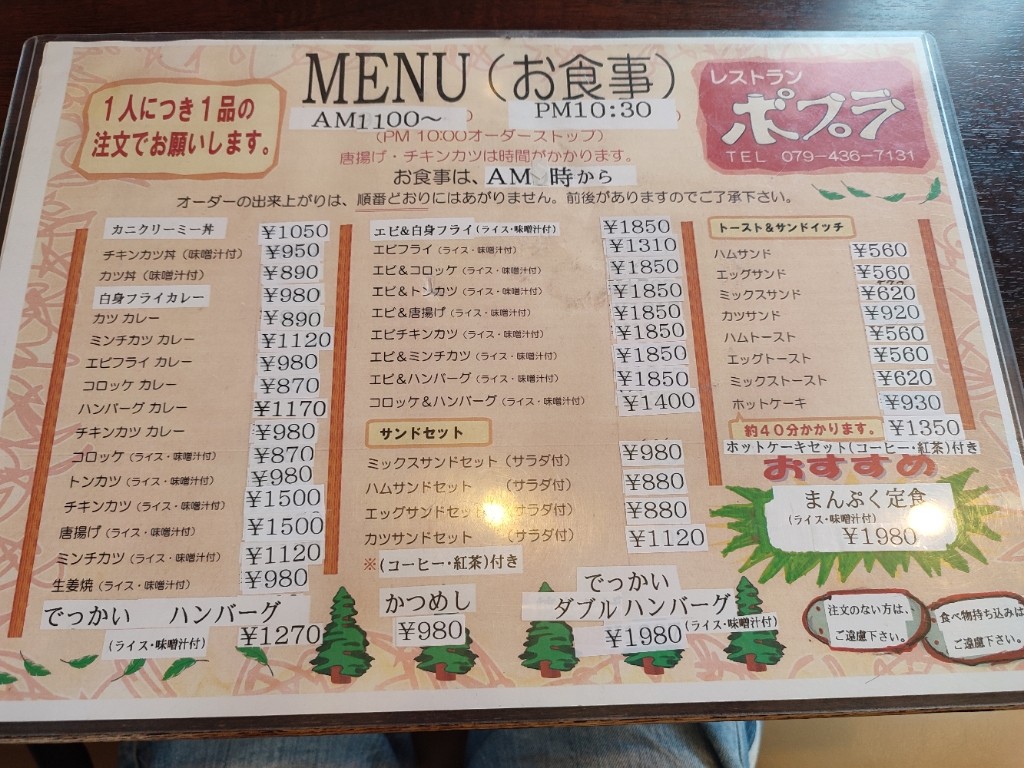 MENU（お食事）
1人につき1品の
注文でお願いします。
AM1100～ PM10:30
（PM 10:00オーダーストップ）
唐揚げ・チキンカツは時間がかかります。
お食事は、AM 時から
オーダーの出来上がりは、順番どおりにはあがりません。前後がありますのでご了承下さい。
レストラン
ポプラ
TEL 079-436-7131
カニクリーミー丼 ¥1050
チキンカツ丼（味噌汁付） ¥950
カツ丼（味噌汁付） ¥890
白身フライカレー ¥980
カツ カレー ¥890
ミンチカツ カレー ¥1120
エビフライ カレー ¥980
コロッケ カレー ¥870
ハンバーグ カレー ¥1170
チキンカツ カレー ¥980
コロッケ（ライス・味噌汁付） ¥870
トンカツ（ライス・味噌汁付） ¥980
チキンカツ（ライス・味噌汁付） ¥1500
唐揚げ（ライス・味噌汁付） ¥1500
ミンチカツ（ライス・味噌汁付） ¥1120
生姜焼（ライス・味噌汁付） ¥980
でっかい ハンバーグ
（ライス・味噌汁付） ¥1270
エビ&白身フライ（ライス・味噌汁付） ¥1850
エビフライ（ライス・味噌汁付） ¥1310
エビ&コロッケ（ライス・味噌汁付） ¥1850
エビ&トンカツ（ライス・味噌汁付） ¥1850
エビ&唐揚げ（ライス・味噌汁付） ¥1850
エビチキンカツ（ライス・味噌汁付） ¥1850
エビ&ミンチカツ（ライス・味噌汁付） ¥1850
エビ&ハンバーグ（ライス・味噌汁付） ¥1850
コロッケ&ハンバーグ（ライス・味噌汁付） ¥1400
サンドセット
ミックスサンドセット（サラダ付） ¥980
ハムサンドセット （サラダ付） ¥880
エッグサンドセット （サラダ付） ¥880
カツサンドセット （サラダ付） ¥1120
※（コーヒー・紅茶）付き
かつめし
¥980
でっかい
ダブルハンバーグ
¥1980（ライス・味噌汁付）
トースト&サンドイッチ
ハムサンド ¥560
エッグサンド ¥560
ミックスサンド ¥620
カツサンド ¥920
ハムトースト ¥560
エッグトースト ¥560
ミックストースト ¥620
ホットケーキ ¥930
約40分かかります。 ¥1350
ホットケーキセット（コーヒー・紅茶）付き
おすすめ
まんぷく定食
（ライス・味噌汁付）
¥1980
注文のない方は、
ご遠慮下さい。
食べ物持ち込みは
ご遠慮下さい。